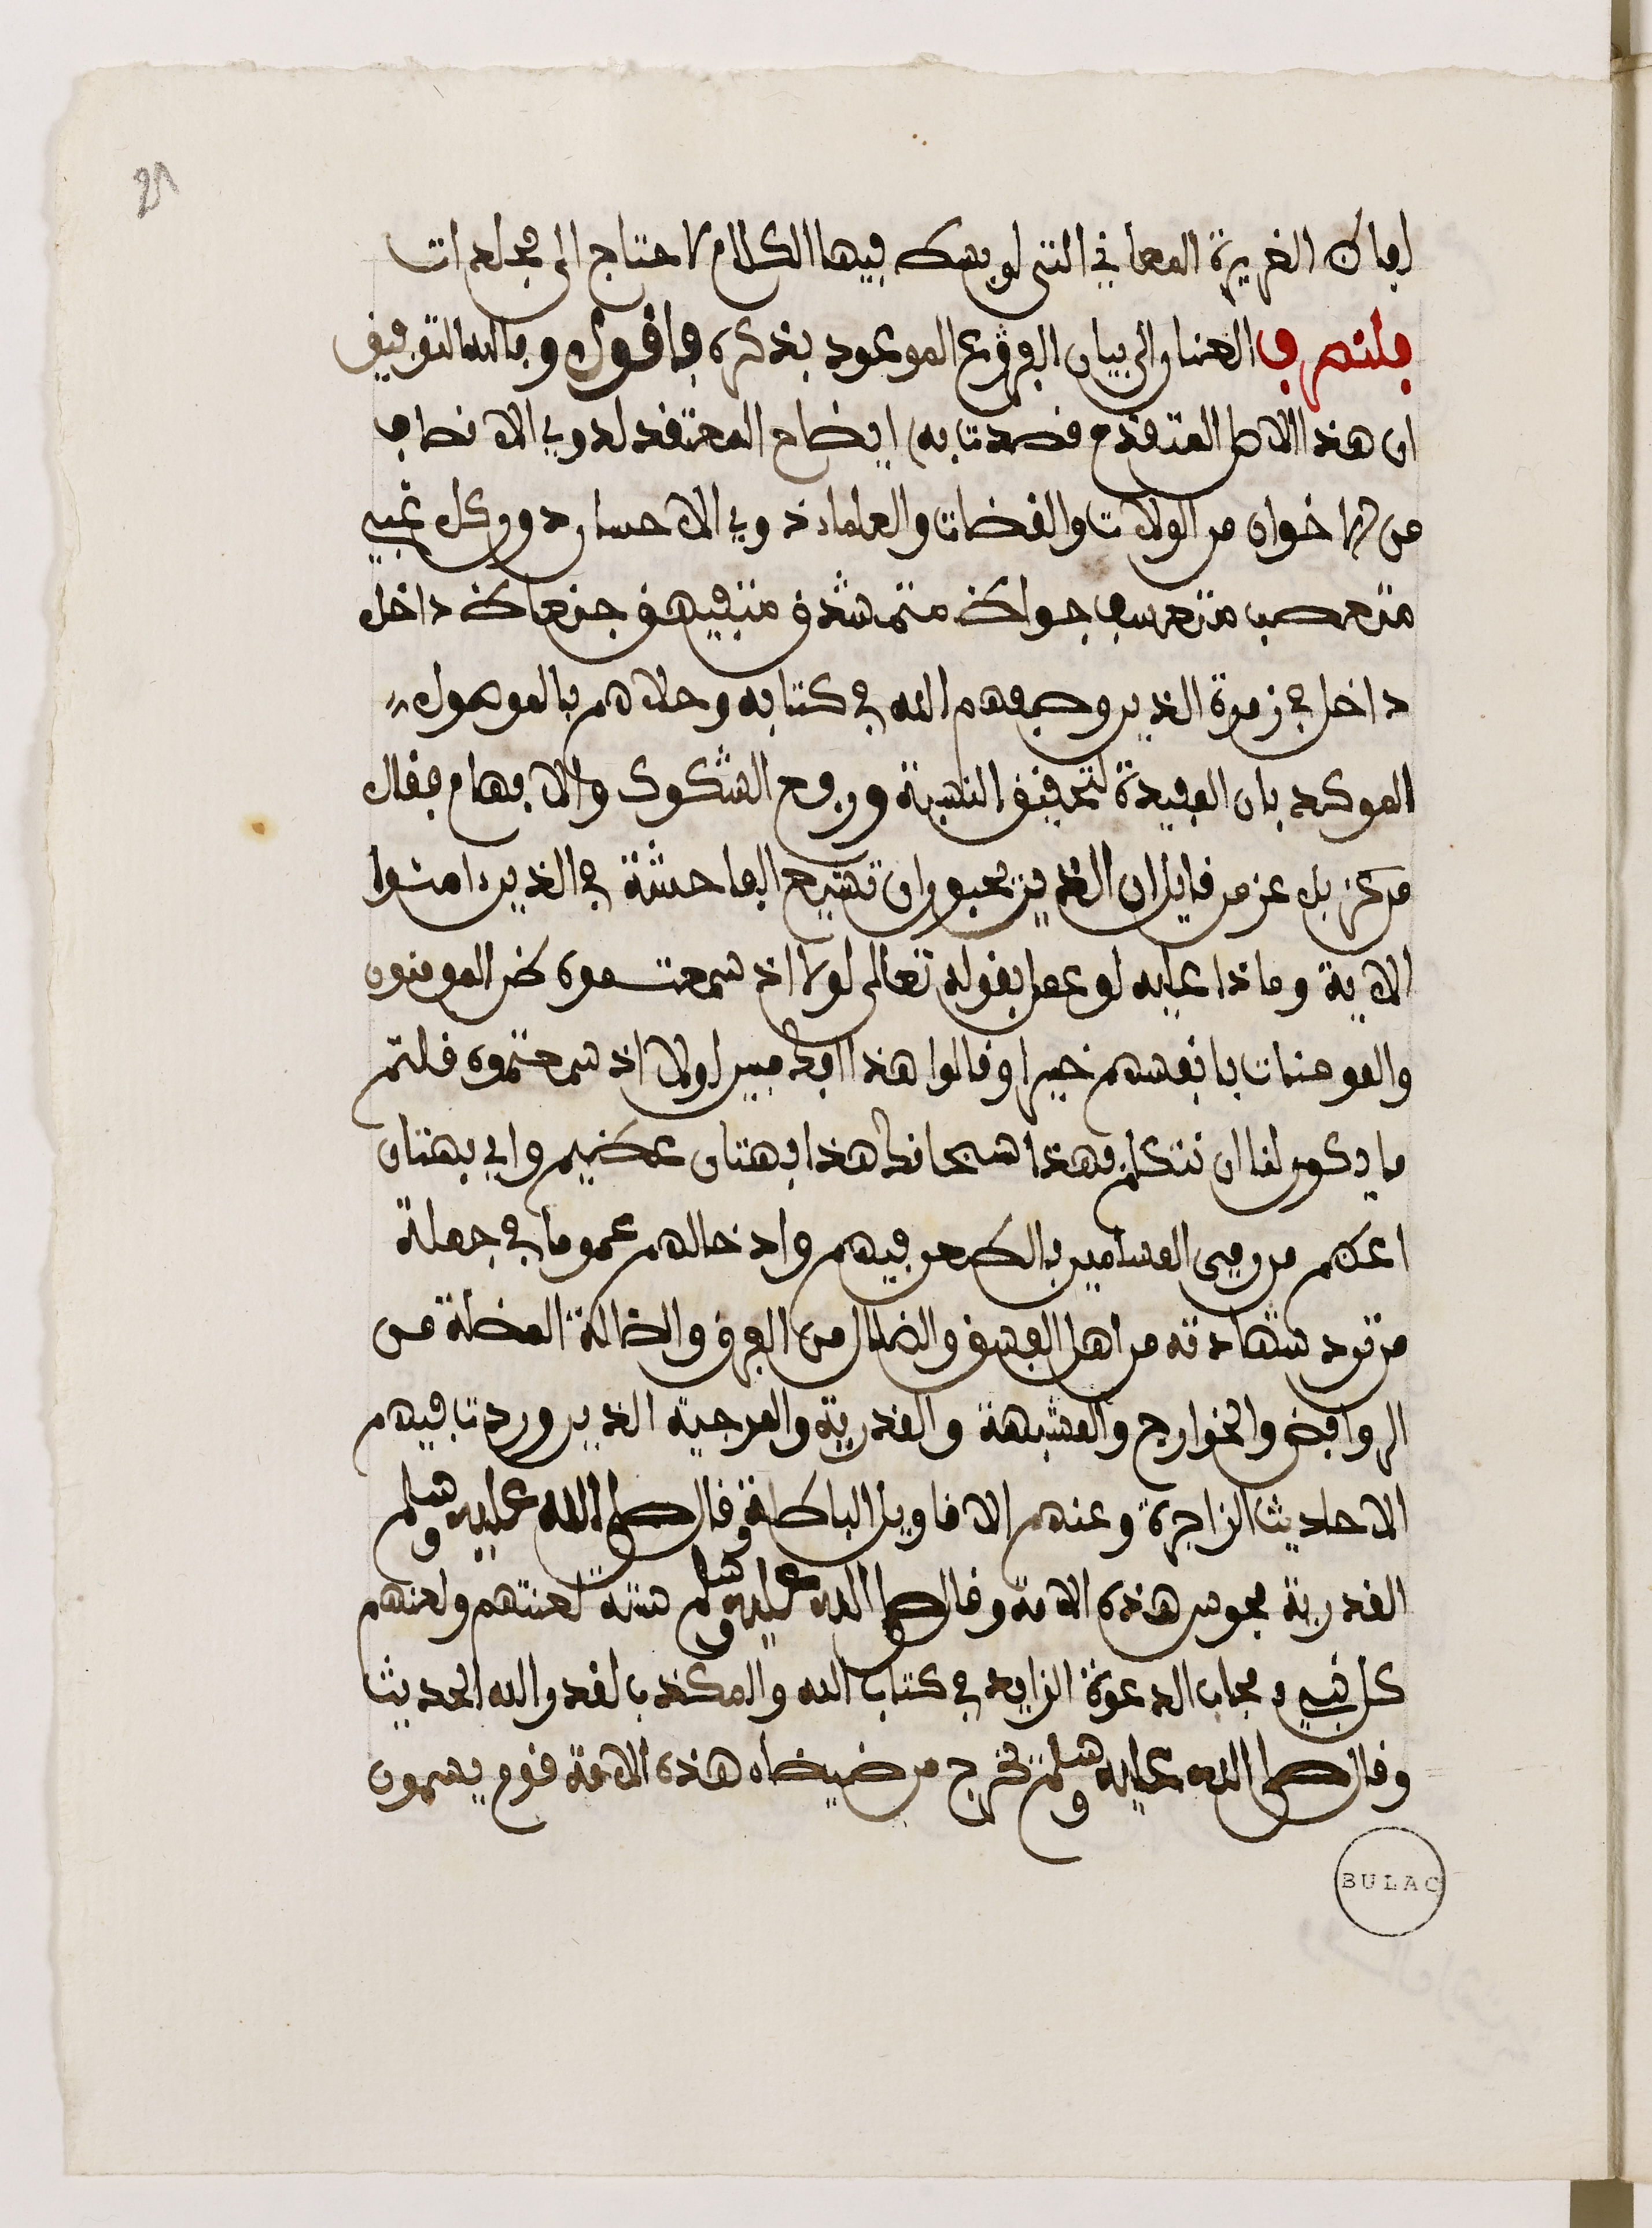 21
الفاظ الغزيرة المعاني التي لو بسط فيها الكلام لاحتاج الى مجلدات
فلنصرف العنان الى بيان الفروع الموعود بذكره فاقول وبالله التوفيق
ان هذا الاصل المتقدم قصدت به ايضاح المعتقد لذوي الانصاف
من الاخوان من الولات والقضات والعلماء ذوي الاحسان دون كل غبي
متعصب متعسف جواظ متمشدق متفيهق جنعاظ داخل
داخل في زمرة الذين وصفهم الله في كتابه وحلاهم بالموصول
الموكد بان المفيدة لتحقيق النسبة ورفع الشكوك والاوهام فقال
من عز بل عز من قايل ان الذين يحبون ان تشيع الفاحشة في الذين امنوا
الاية وماذا عليه لو عمل بقوله تعالى لولا اذ سمعتموه ظن المومنون
والمومنات بانفسهم خيرا وقالوا هذا افك مبين ولولا اذ سمعتموه قلتم
ما يكون لنا ان نتكلم بهذا سبحانك هذا بهتان عظيم واي بهتان
اعظم من رمي المسلمين بالطعن فيهم وادخالهم عموما في جملة
من ترد شهادته من اهل الفسق والضلال من الفرق والضالة المضلة من
الروافض والخوارج والمشبهة والقدرية والمرجية الذين وردت فيهم
الاحاديث الزاجرة وعنهم الاقاويل الباطلة وقال صلى الله عليه وسلم
القدرية مجوس هذه الامة وقال صلى الله عليه وسلم ستة لعنتهم ولعنهم
كل نبي مجاب الدعوة الزايد في كتاب الله والمكذب لقدر الله الحديث
وقال صلى الله عليه وسلم تخرج من ضيضاه هذه الامة قوم يسمون
BULAC